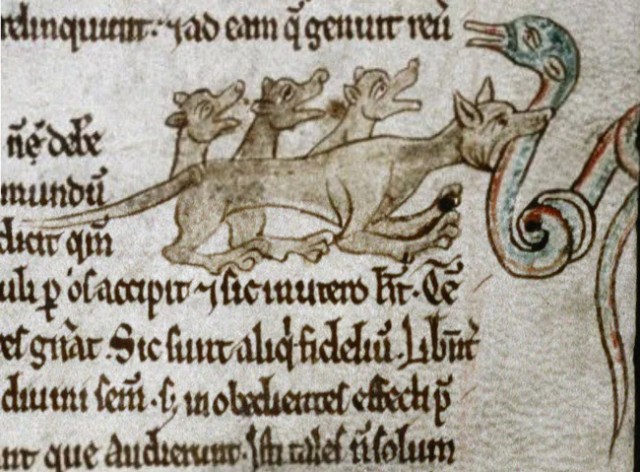 relinquunt. ⁊ ad eam q̄ genuit reū
n̄ę debe
mundū
dicit qm̄
uli ꝑ os accipit ⁊ sic in utero h̄t. Cē
res gn̄at. Sic sunt aliqⁱ fideliū. Libn̄t
diuini sem̄. s; in obedientes effecti p̄
nt que audierunt. Isti tales n̄ solum